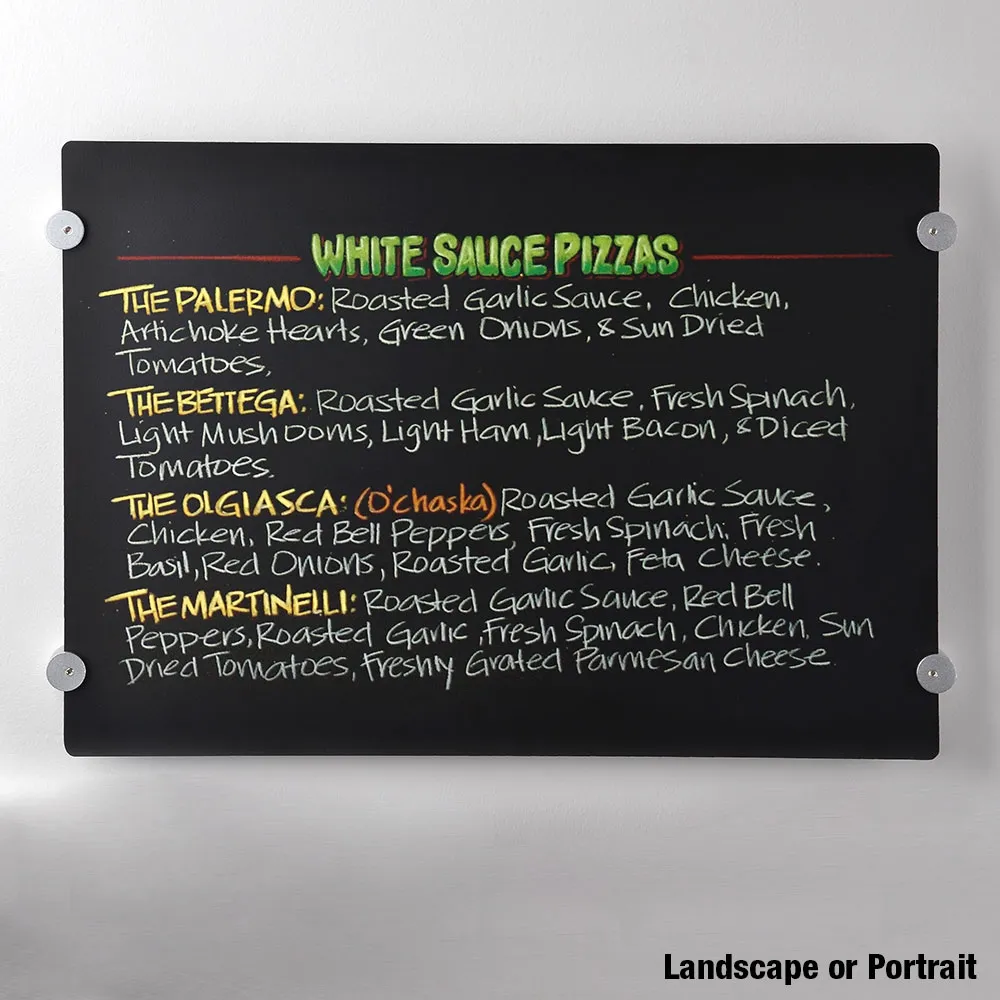 WHITE SAUCE PIZZAS
THE PALERMO: Roasted Garlic Sauce, Chicken,
Artichoke Hearts, Green Onions, & Sun Dried
Tomatoes,
THE BETTEGA: Roasted Garlic Sauce, Fresh Spinach,
Light Mushooms, Light Ham, Light Bacon, & Diced
Tomatoes.
THE OLGIASCA: (O'chaska) Roasted Garlic Sauce,
Chicken, Red Bell Peppers, Fresh Spinach, Fresh
Basil, Red Onions, Roasted Garlic, Feta Cheese.
THE MARTINELLI: Roasted Garlic Sauce, Red Bell
Peppers, Roasted Garlic, Fresh Spinach, Chicken, Sun
Dried Tomatoes, Freshly Grated Parmesan Cheese.
Landscape or Portrait